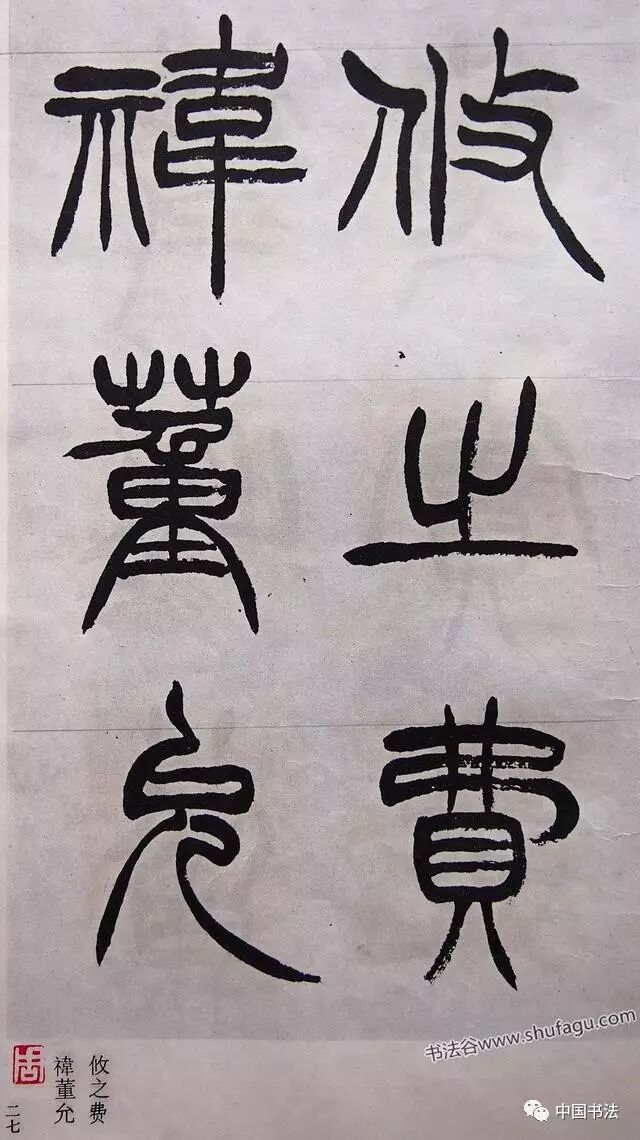 攸之費
禕董允
攸之费
禕董允
二七
书法谷www.shufagu.com
中国书法